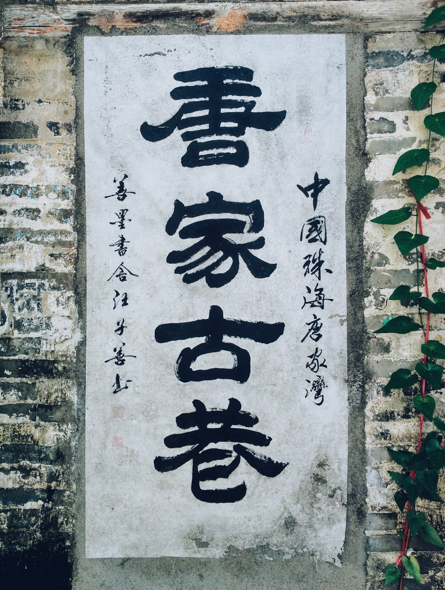 中國珠海唐家灣
唐家古巷
善墨書舍汪善书